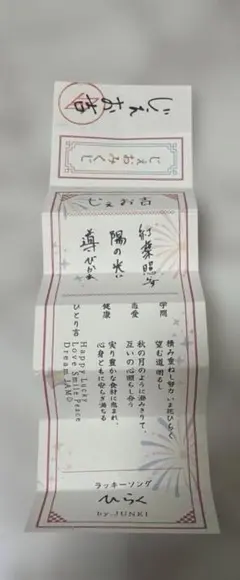 じぇお吉
じぇおみくじ
じぇお吉
紅葉照
陽の光
導びかれ
学問
積み重ねし努力いま花ひらく
望む道明るし
恋愛
秋の月のように澄みきりて、
互いの心照らし合う
健康
実り豊かな食材に恵まれ、
心身ともに安らぎ満ちる
ひとり言
Happy Lucky
Love Smile Peace
Dream JAM☺
ラッキーソング
ひらく
by.JUNKI